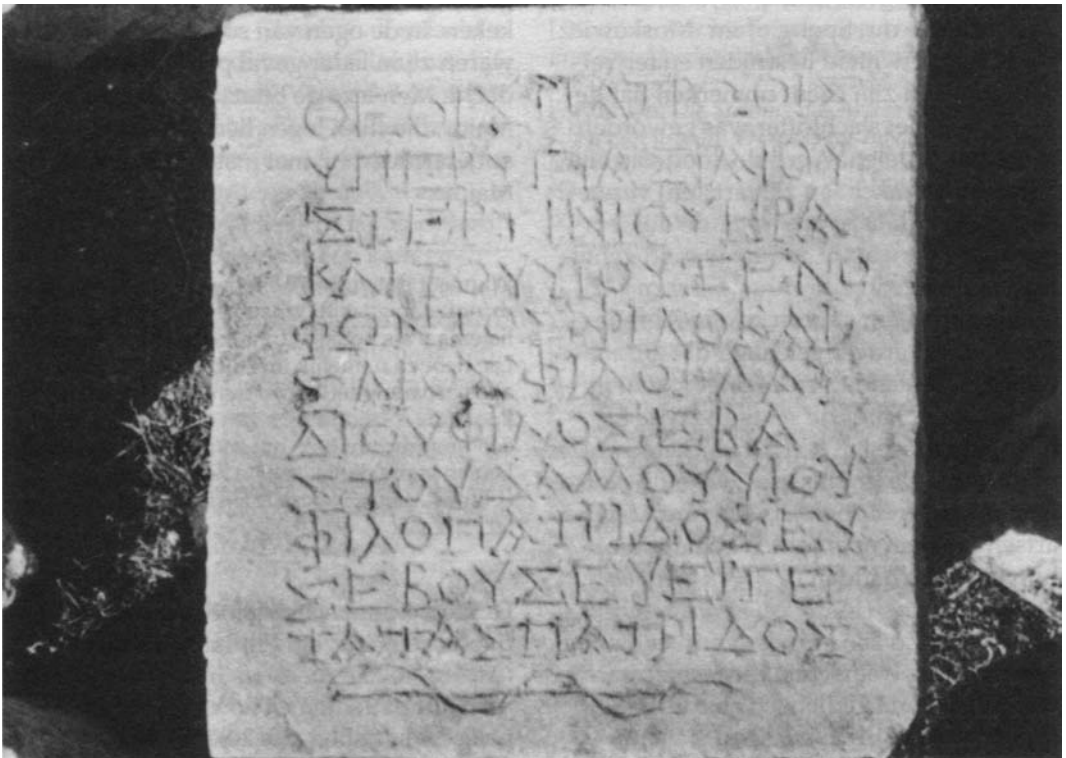 ΘΕΟΙΣ ΠΑΤΡΩΟΙΣ
ΥΠΕΡΥΓΙΑΣΓΑΙΟΥ
ΣΤΕΡΤΙΝΙΟΥΗΡΑ
ΚΛΙΤΟΥΥΙΟΥΞΕΝΟ
ΦΩΝΤΟΣΦΙΛΟΚΑΙ
ΣΑΡΟΣΦΙΛΟΚΛΑΥ
ΔΙΟΥΦΙΛΟΣΕΒΑ
ΣΤΟΥΔΑΜΟΥΥΙΟΥ
ΦΙΛΟΠΑΤΡΙΔΟΣΕΥ
ΣΕΒΟΥΣΕΥΕΡΓΕ
ΤΑΤΑΣΠΑΤΡΙΔΟΣ